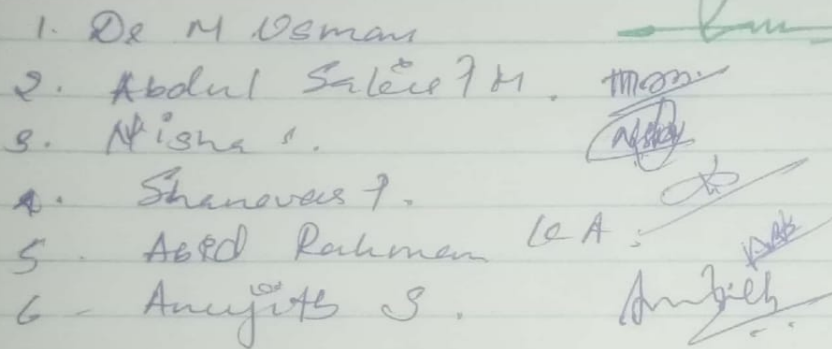 1. Dr M Usman
2. Abdul Saleee P M.
3. Nisha S.
4. Shanavas P.
5. Abid Rahman K A.
6 - Anujith S.